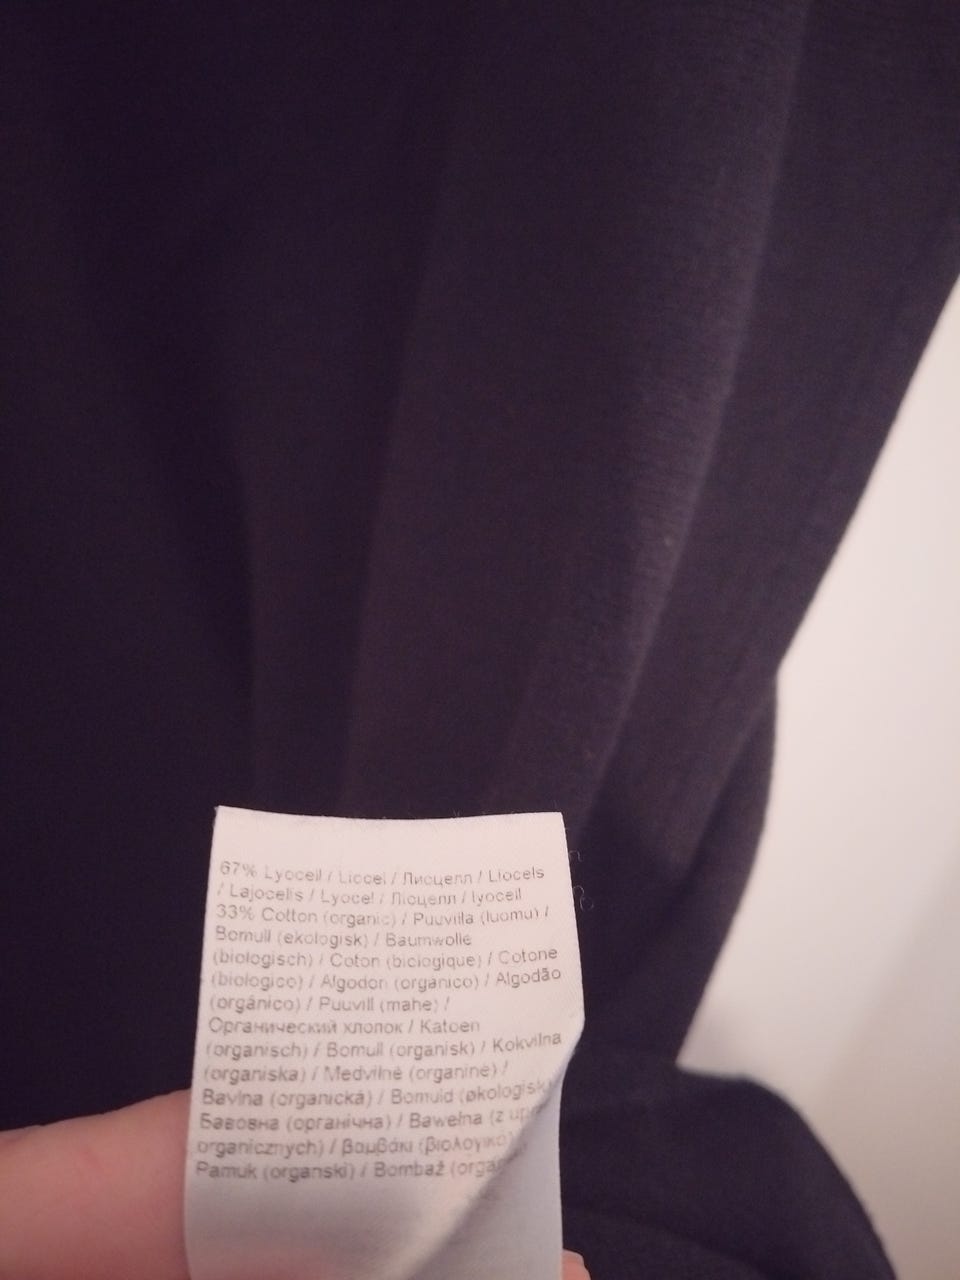 67% Lyocell / Liocel / Лиоцелл / Liocels
/ Lajocelis / Lyocel / Ліоцелл / lyocell
33% Cotton (organic) / Puuvilla (luomu) /
Bomull (ekologisk) / Baumwolle
(biologisch) / Coton (biologique) / Cotone
(biologico) / Algodon (orgánico) / Algodão
(orgánico) / Puuvill (mahe) /
Органический хлопок / Katoen
(organisch) / Bomull (organisk) / Kokvilna
(organiska) / Medvilnė (organinė) /
Bavlna (organická) / Bomuld (økologisk)
Бавовна (органічна) / Bawełna (z
organicznych) / βαμβάκι (βιολογικό)
Pamuk (organski) / Bombaž